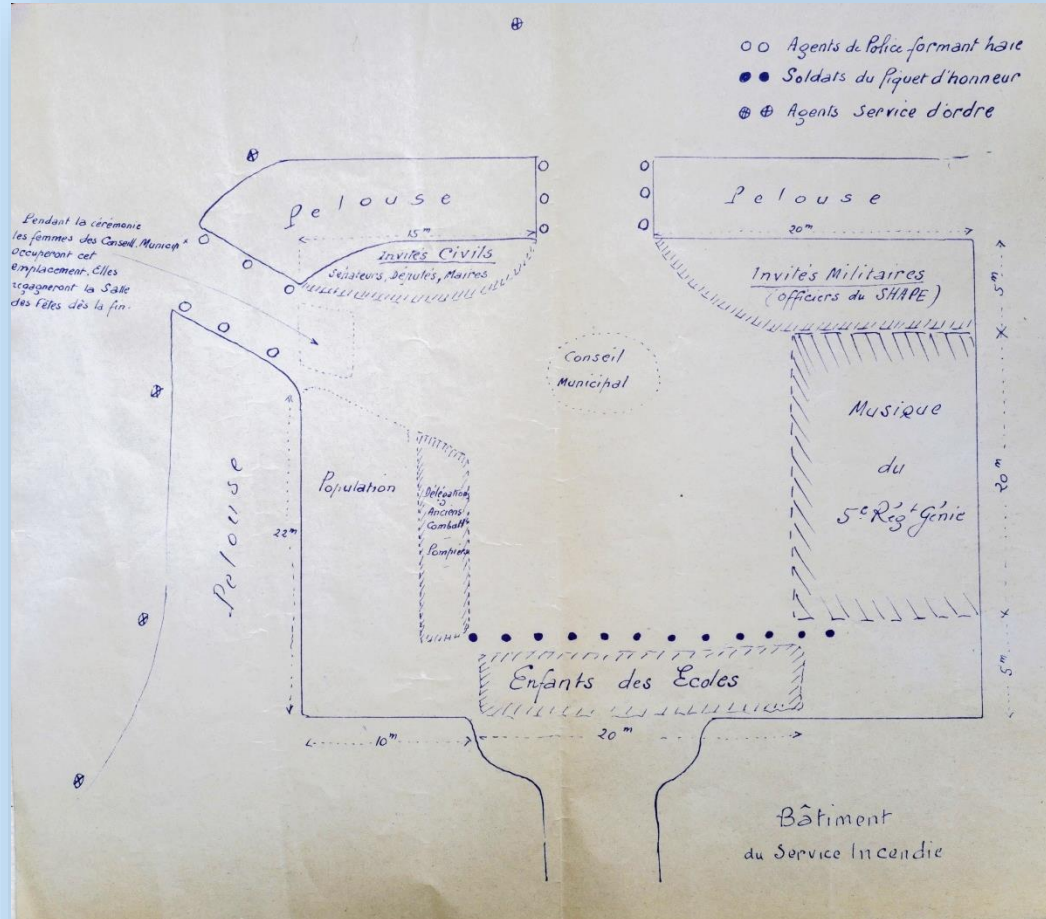 Agents de Police formant haie
Soldats du Piquet d'honneur
Agents Service d'ordre
Pelouse
15m
Invités Civils
Sénateurs, Députés, Maires
Pelouse
20m
Invités Militaires
(officiers du SHAPE)
5m
Pendant la cérémonie
les femmes des Conseill. Municip.x
occuperont cet
emplacement. Elles
regagneront la Salle
des Fêtes dès la fin.
Conseil
Municipal
Musique
du
5e Régt Génie
20m
Pelouse
22m
Population
Délégation
Anciens
Combatt
Pompiers
Enfants des Ecoles
5m
10m
20m
Bâtiment
du Service Incendie